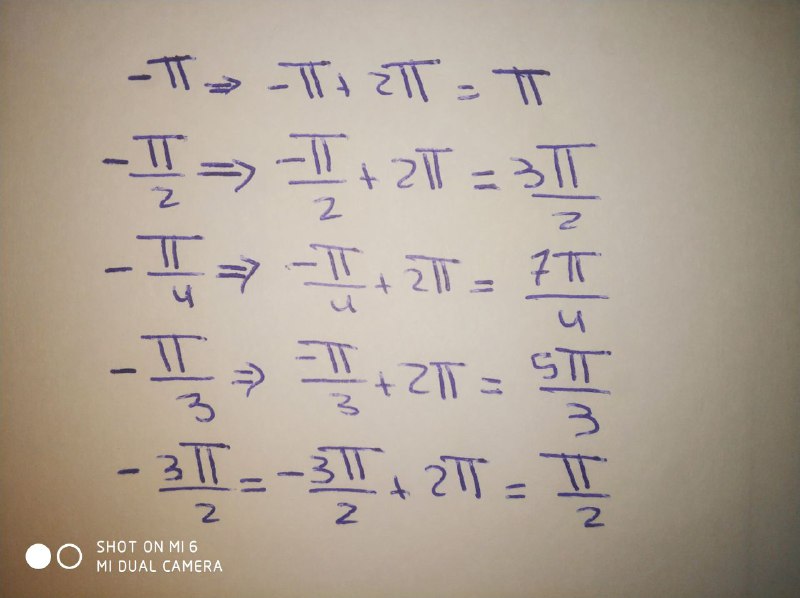 -π ⇒ -π + 2π = π
-π/2 ⇒ -π/2 + 2π = 3π/2
-π/4 ⇒ -π/4 + 2π = 7π/4
-π/3 ⇒ -π/3 + 2π = 5π/3
-3π/2 = -3π/2 + 2π = π/2
SHOT ON MI 6
MI DUAL CAMERA